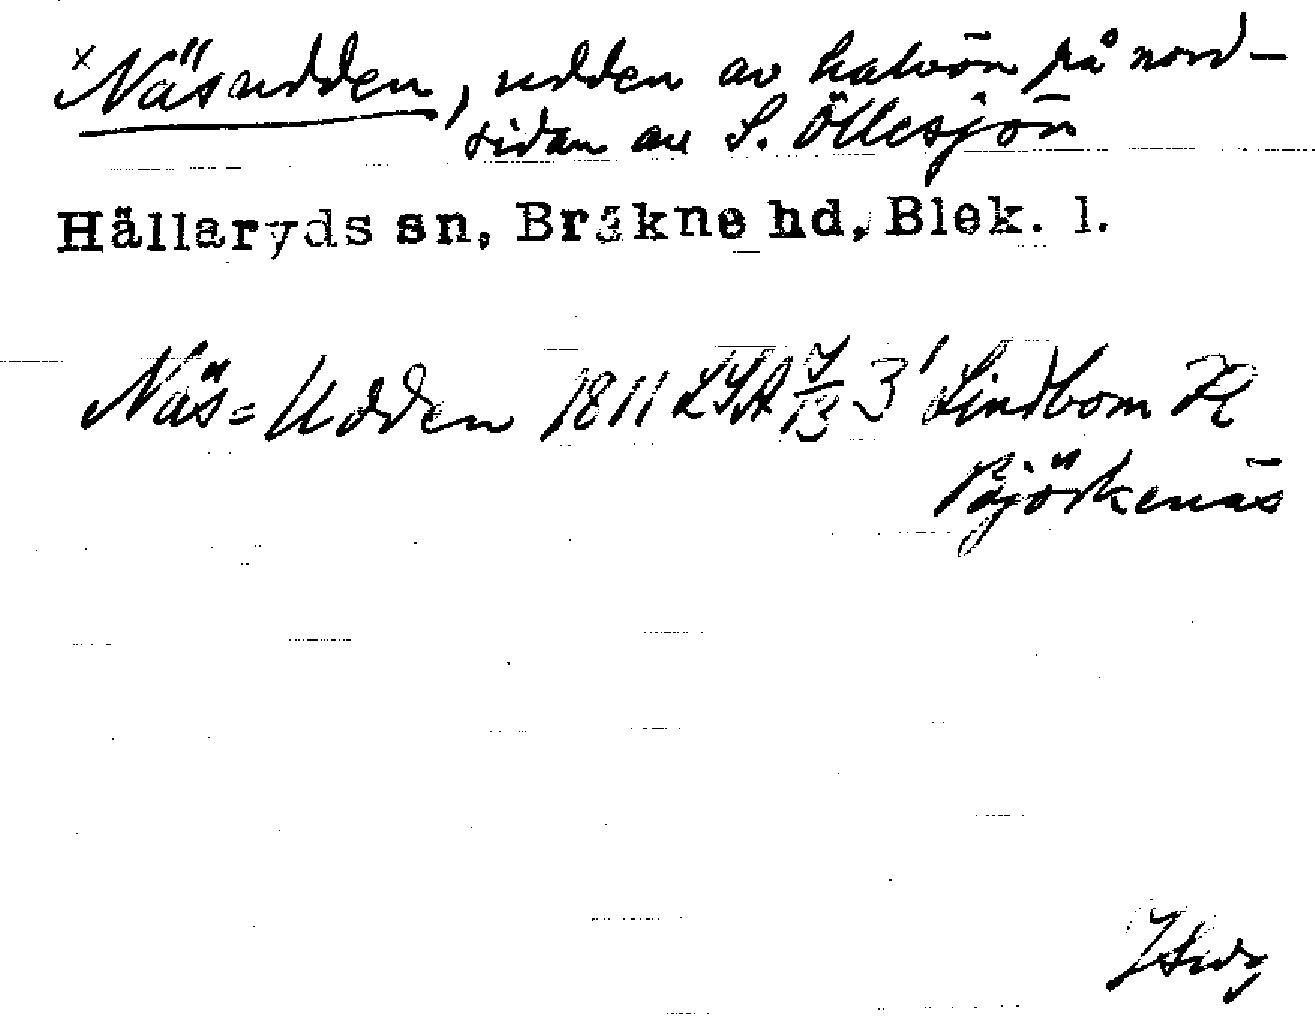 x Näsudden, udden av halvön på nord-
sidan av S. Öllesjön
Hällaryds sn, Bräkne hd, Blek. l.
Näs=Udden 1811 LSA 3 Lindbom R
Björkenäs